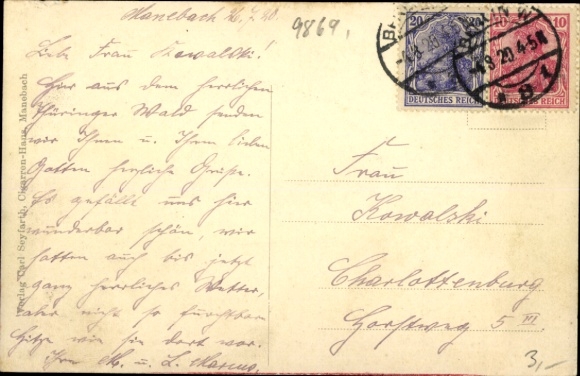 Manebach 26.7.20.
9869.
Liebe Frau Kowalski!
Hier aus dem herrlichen
Thüringer Wald senden
wir Ihnen u. Ihrem lieben
Gatten herzliche Grüße.
Es gefällt uns hier
wunderbar schön, wir
hatten auch bis jetzt
ganz herrliches Wetter,
aber nicht so furchtbare
Hitze wie sie dort war.
Ihre M. u. L.
Verlag Carl Seyfarth, Cigarren-Haus, Manebach
20 20
DEUTSCHES REICH
10
DEUTSCHES REICH
BERLIN W
8.20 4-5N
* 8 1
Frau
Kowalski
Charlottenburg
Horstweg 5 III.
3,-